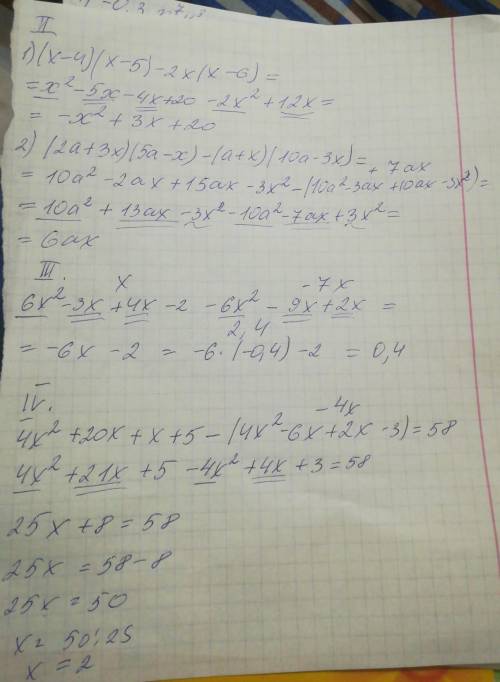 II
1) (x-4)(x-5)-2x(x-6)=
=x²-5x-4x+20-2x²+12x=
=-x²+3x+20
2) (2a+3x)(5a-x)-(a+x)(10a-3x)=
+7ax
=10a²-2ax+15ax-3x²-(10a²-3ax+10ax-3x²)=
=10a²+13ax-3x²-10a²-7ax+3x²=
=6ax
III.
x -7x
6x²-3x+4x-2 -6x²-9x+2x =
2,4
=-6x-2 = -6·(-0,4)-2 = 0,4
IV.
-4x
4x²+20x+x+5-(4x²-6x+2x-3)=58
4x²+21x+5-4x²+4x+3=58
25x+8=58
25x=58-8
25x=50
x=50:25
x=2